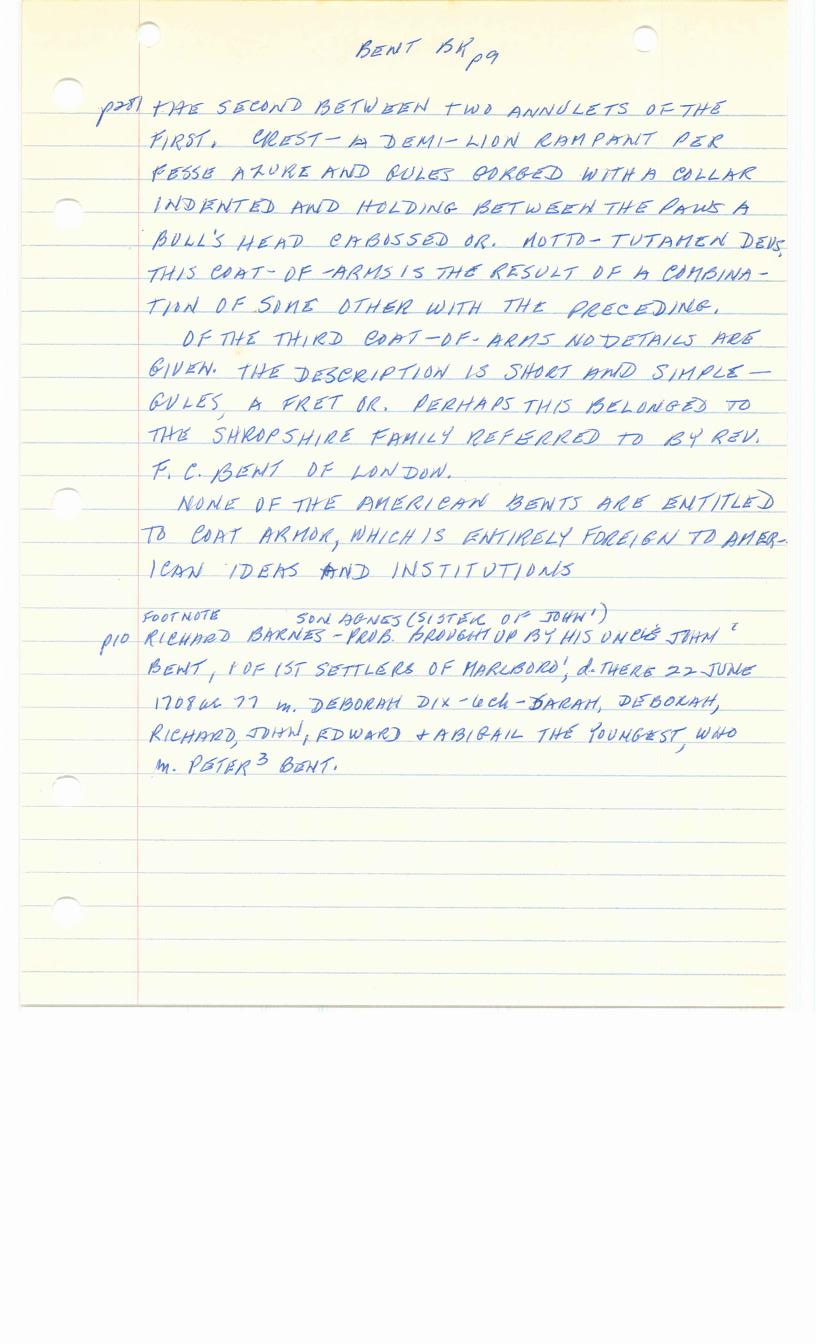 BENT BK p9
p281 THE SECOND BETWEEN TWO ANNULETS OF THE
FIRST. CREST- A DEMI-LION RAMPANT PER
FESSE AZURE AND GULES GORGED WITH A COLLAR
INDENTED AND HOLDING BETWEEN THE PAWS A
BULL'S HEAD CABOSSED OR. MOTTO- TUTAMEN DEUS.
THIS COAT-OF-ARMS IS THE RESULT OF A COMBINA-
TION OF SOME OTHER WITH THE PRECEDING.
OF THE THIRD COAT-OF-ARMS NO DETAILS ARE
GIVEN. THE DESCRIPTION IS SHORT AND SIMPLE-
GULES, A FRET OR. PERHAPS THIS BELONGED TO
THE SHROPSHIRE FAMILY REFERRED TO BY REV.
F. C. BENT OF LONDON.
NONE OF THE AMERICAN BENTS ARE ENTITLED
TO COAT ARMOR, WHICH IS ENTIRELY FOREIGN TO AMER-
ICAN IDEAS AND INSTITUTIONS
FOOTNOTE SON AGNES (SISTER OF JOHN')
p10 RICHARD BARNES - PROB. BROUGHT UP BY HIS UNCLE JOHN
BENT, 1 OF 1ST SETTLERS OF MARLBORO', d. THERE 22 JUNE
1708 ae 77 m. DEBORAH DIX - 6 ch - SARAH, DEBORAH,
RICHARD, JOHN, EDWARD & ABIGAIL THE YOUNGEST, WHO
m. PETER³ BENT.